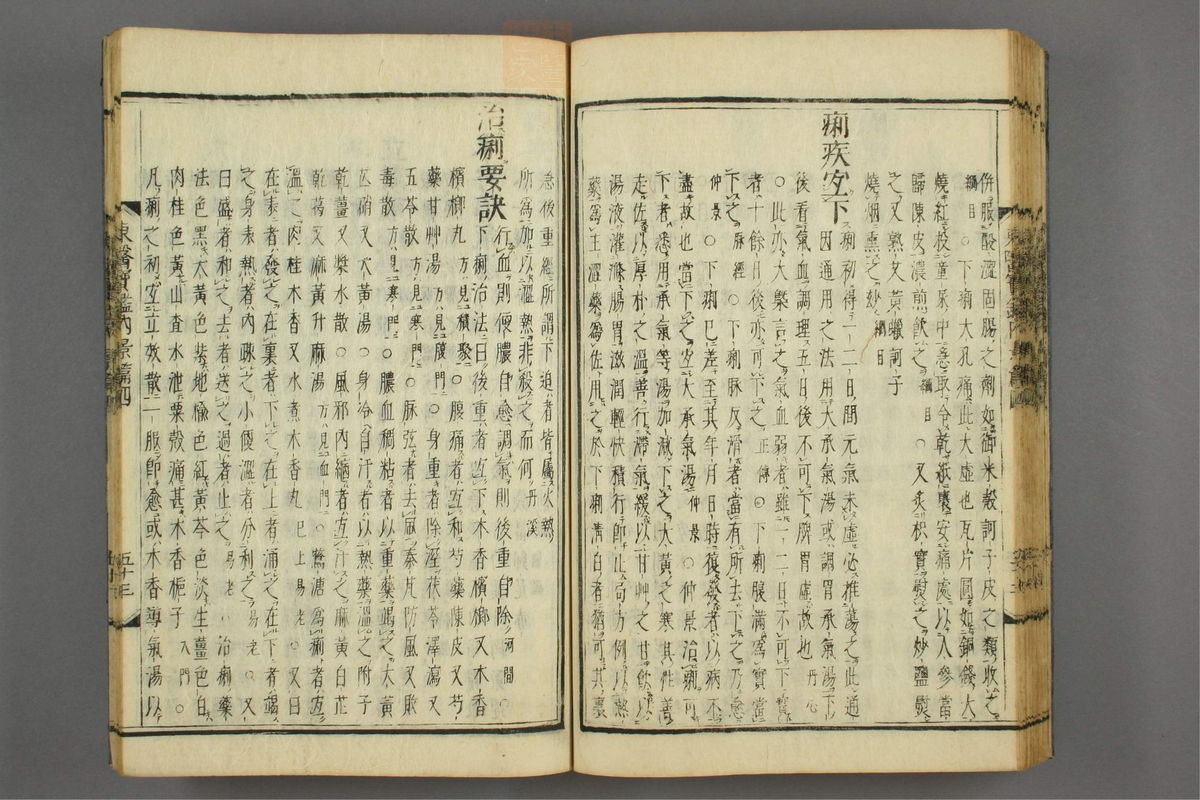 併服酸澁固腸之劑如御米殼訶子皮之類收之
綱目○下痢大孔痛此大虛也瓦片圓如銅錢大
燒紅投童尿中急取令乾紙裹安痛處以人參當
歸陳皮濃煎飮之綱目○又炙枳實熨之妙鹽熨
之又熟艾黃蠟訶子
燒烟熏之妙綱目
痢疾宜下
痢初得一二日間元氣未虛必推蕩之此通
因通用之法用大承氣湯或調胃承氣湯下
後看氣血調理五日後不可下脾胃虛故也丹心
○此亦大槩言之氣血弱者雖一二日不可下實
者十餘日後亦可下之正傳○下痢腹滿為實當
下之脉經○下痢脉反滑者當有所去下之乃愈
仲景○下痢已差至其年月日時復發者以病不
盡故也當下之宜大承氣湯仲景○仲景治痢可
下者悉用承氣等湯加減下之大黃之寒其性善
走佐以厚朴之溫善行滯氣緩以甘艸之甘飮以
湯液灌滌腸胃滋潤輕快積行即止局方例以熱
藥為主澁藥為佐用之於下痢淸白者猶可其裏
急後重經所謂下迫者皆屬火熱
所為加以溫熱非殺之而何丹溪
治痢要訣
行血則便膿自愈調氣則後重自除河間○
下痢治法曰後重者宜下木香檳榔又木香
檳榔丸方見積聚○腹痛者宜和芍藥陳皮又芍
藥甘艸湯方見腹門○身重者除濕茯苓澤瀉又
五苓散方見寒門○脉弦者去風秦艽防風又敗
毒散方見寒門○膿血稠粘者以重藥竭之大黃
芒硝又大黃湯○身冷自汗者以熱藥溫之附子
乾薑又漿水散○風邪內縮者宜汗之麻黃白芷
乾葛又麻黃升麻湯方見血門○鶩溏為痢者宜
溫之肉桂木香又水煮木香丸已上易老○又曰
在表者發之在裏者下之在上者涌之在下者竭
之身表熱者內踈之小便澁者分利之易老○又
曰盛者和之去者送之過者止之易老○治痢藥
法色黑大黃色紫地楡色紅黃芩色淡生薑色白
肉桂色黃山査水泄粟殼痛甚木香梔子入門○
凡痢之初宜立效散一服即愈或木香導氣湯以
東醫寶鑑內景篇四
五十三